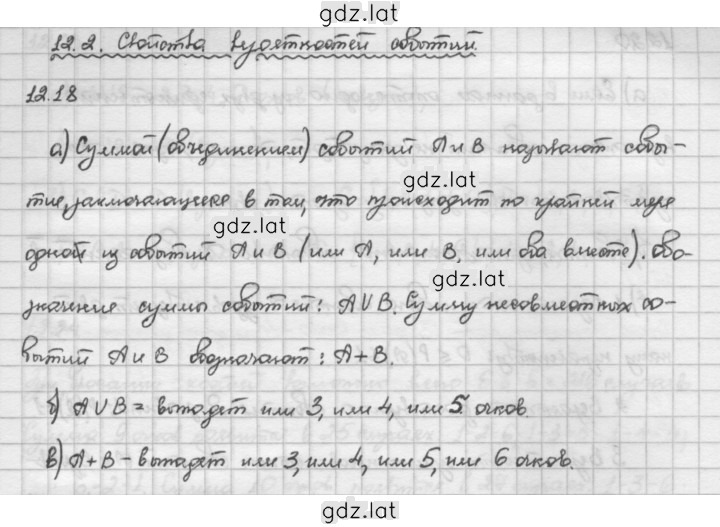 gdz.lat
12.2. Свойства вероятностей событий.
12.18
а) Суммой (объединением) событий А и В называют собы-
gdz.lat
тие, заключающееся в том, что происходит по крайней мере
gdz.lat
одной из событий А и В (или А, или В, или оба вместе). Обо-
значение суммы событий: А∪В. Сумму несовместных со-
gdz.lat
бытий А и В обозначают: А+В.
б) А∪В = выпадет или 3, или 4, или 5 очков.
в) А+В – выпадет или 3, или 4, или 5, или 6 очков.
gdz.lat